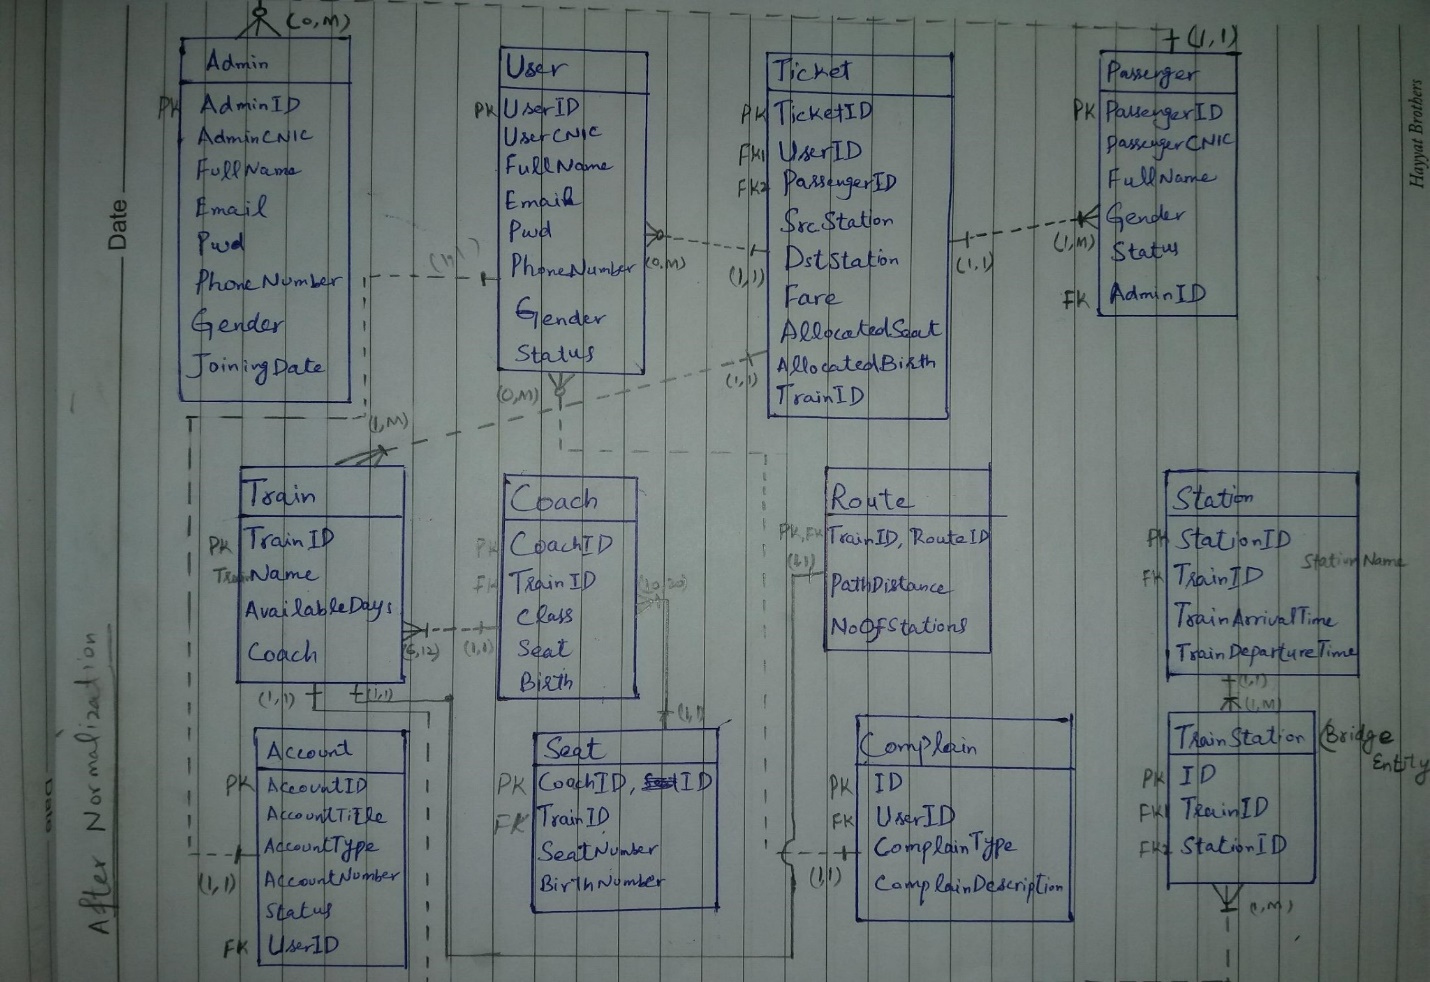 Hayyat Brothers
Date
After Normalization
(0,M)
(1,1)
Admin
PK AdminID
AdminCNIC
FullName
Email
Pwd
PhoneNumber
Gender
JoiningDate
User
PK UserID
UserCNIC
FullName
Email
Pwd
PhoneNumber
Gender
Status
(0,M)
(1,1)
(0,M)
Ticket
PK TicketID
FK1 UserID
FK2 PassengerID
SrcStation
DstStation
Fare
AllocatedSeat
AllocatedBirth
TrainID
(1,1)
(1,M)
(1,1)
(1,M)
Passenger
PK PassengerID
PassengerCNIC
FullName
Gender
Status
FK AdminID
Train
PK TrainID
TrainName
AvailableDays
Coach
(6,12)
(1,1)
(1,1)
(1,1)
Coach
PK CoachID
FK TrainID
Class
Seat
Birth
(10,20)
(1,1)
Route
PK,FK TrainID, RouteID
(1,1)
PathDistance
NoOfStations
Station
PK StationID
StationName
FK TrainID
TrainArrivalTime
TrainDepartureTime
(1,1)
(1,M)
Account
PK AccountID
AccountTitle
AccountType
AccountNumber
Status
FK UserID
(1,1)
Seat
PK CoachID, ID
FK TrainID
SeatNumber
BirthNumber
Complain
PK ID
FK UserID
ComplainType
ComplainDescription
(1,1)
TrainStation (Bridge
Entity
PK ID
FK1 TrainID
FK2 StationID
(1,M)